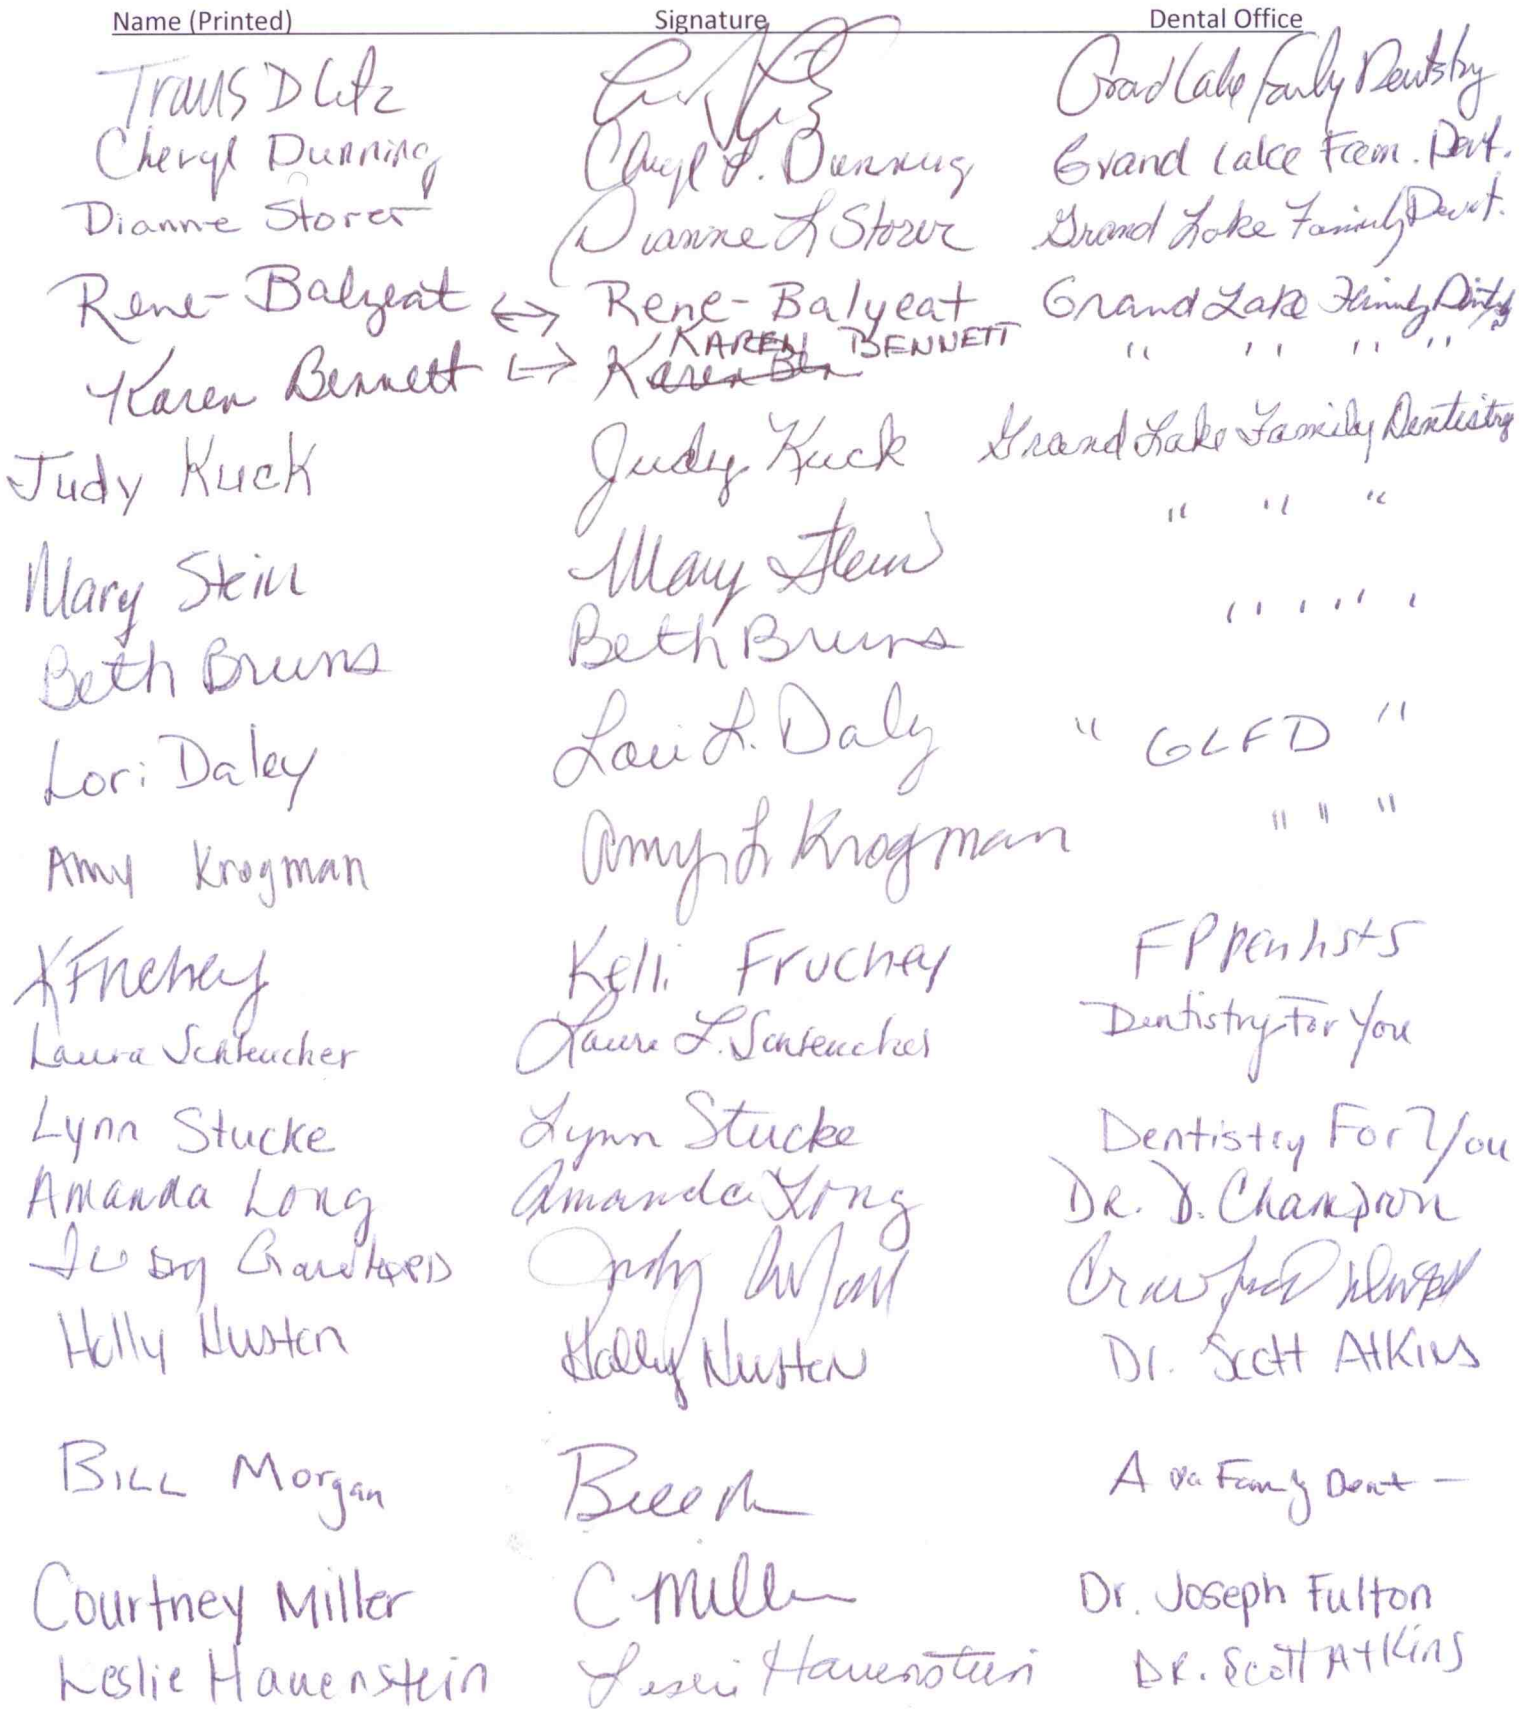 Name (Printed) Signature Dental Office
Travis D Litz Grand Lake Family Dentistry
Cheryl Dunning Cheryl L. Dunning Grand Lake Fam. Dent.
Dianne Storer Dianne L Storer Grand Lake Family Dent.
Rene- Balyeat <-> Rene- Balyeat Grand Lake Family Dentistry
KAREN BENNETT
Karen Bennett <-> Karen Ben " " " "
Judy Kuck Judy Kuck Grand Lake Family Dentistry
Mary Stein Mary Stein " " "
Beth Bruns Beth Bruns " " "
Lori Daley Lori L. Daley " GLFD "
Amy Krogman Amy L Krogman " " "
KFruchey Kelli Fruchey FP Dentists
Laura Schleucher Laura L. Schleucher Dentistry For You
Lynn Stucke Lynn Stucke Dentistry For You
Amanda Long Amanda Long Dr. D. Champion
Judy Crawford Judy Crawford Crawford Dental
Holly Nusten Holly Nusten Dr. Scott Atkins
Bill Morgan Bill M Ada Family Dent -
Courtney Miller C Miller Dr. Joseph Fulton
Leslie Hauenstein Leslie Hauenstein Dr. Scott Atkins